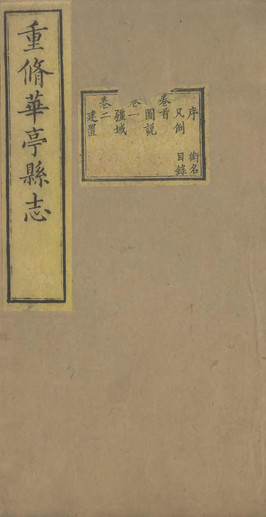 重脩華亭縣志
序 銜名
凡例 目錄
卷首
圖説
卷一
疆域
卷二
建置